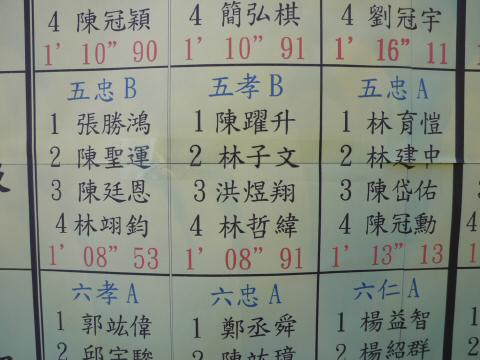 4 陳冠穎
1’ 10” 90
4 簡弘棋
1’ 10” 91
4 劉冠宇
1’ 16” 11
五忠 B
1 張勝鴻
2 陳聖運
3 陳廷恩
4 林翊鈞
1’ 08” 53
五孝 B
1 陳躍升
2 林子文
3 洪煜翔
4 林哲緯
1’ 08” 91
五忠 A
1 林育愷
2 林建中
3 陳岱佑
4 陳冠勳
1’ 13” 13
六孝 A
1 郭竑偉
2 邱宇駿
六忠 A
1 鄭丞舜
2 陳竑瑋
六仁 A
1 楊益智
2 楊紹群